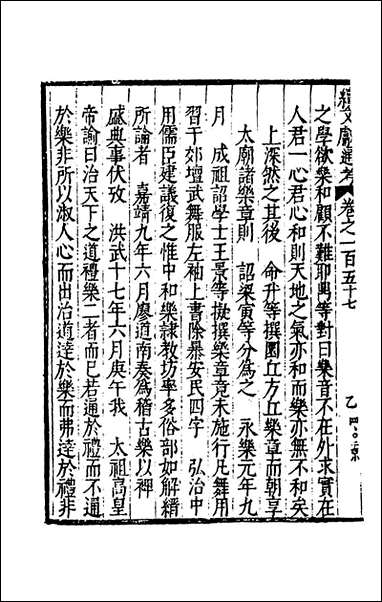 續文獻通考 卷之一百五十七
之學欲樂和顧不難耶興等對曰樂音不在外求實在
人君一心君心和則天地之氣亦和而樂亦無不和矣
上深然之其後 命升等撰圜丘方丘樂章而朝享
太廟諸樂章則 詔梁寅等分為之 永樂元年九
月 成祖詔學士王景等擬撰樂章竟未施行凡舞用
習于郊壇武舞服左袖上書除暴安民四字 弘治中
用儒臣建議復之惟中和樂隸教坊率多俗部如解縉
所論者 嘉靖九年六月廖道南奏為稽古樂以裨
盛典事伏攷 洪武十七年六月庚午我 太祖高皇
帝諭曰治天下之道禮樂二者而已若遍於禮而不通
於樂非所以淑人心而出治道達於樂而弗達於禮非